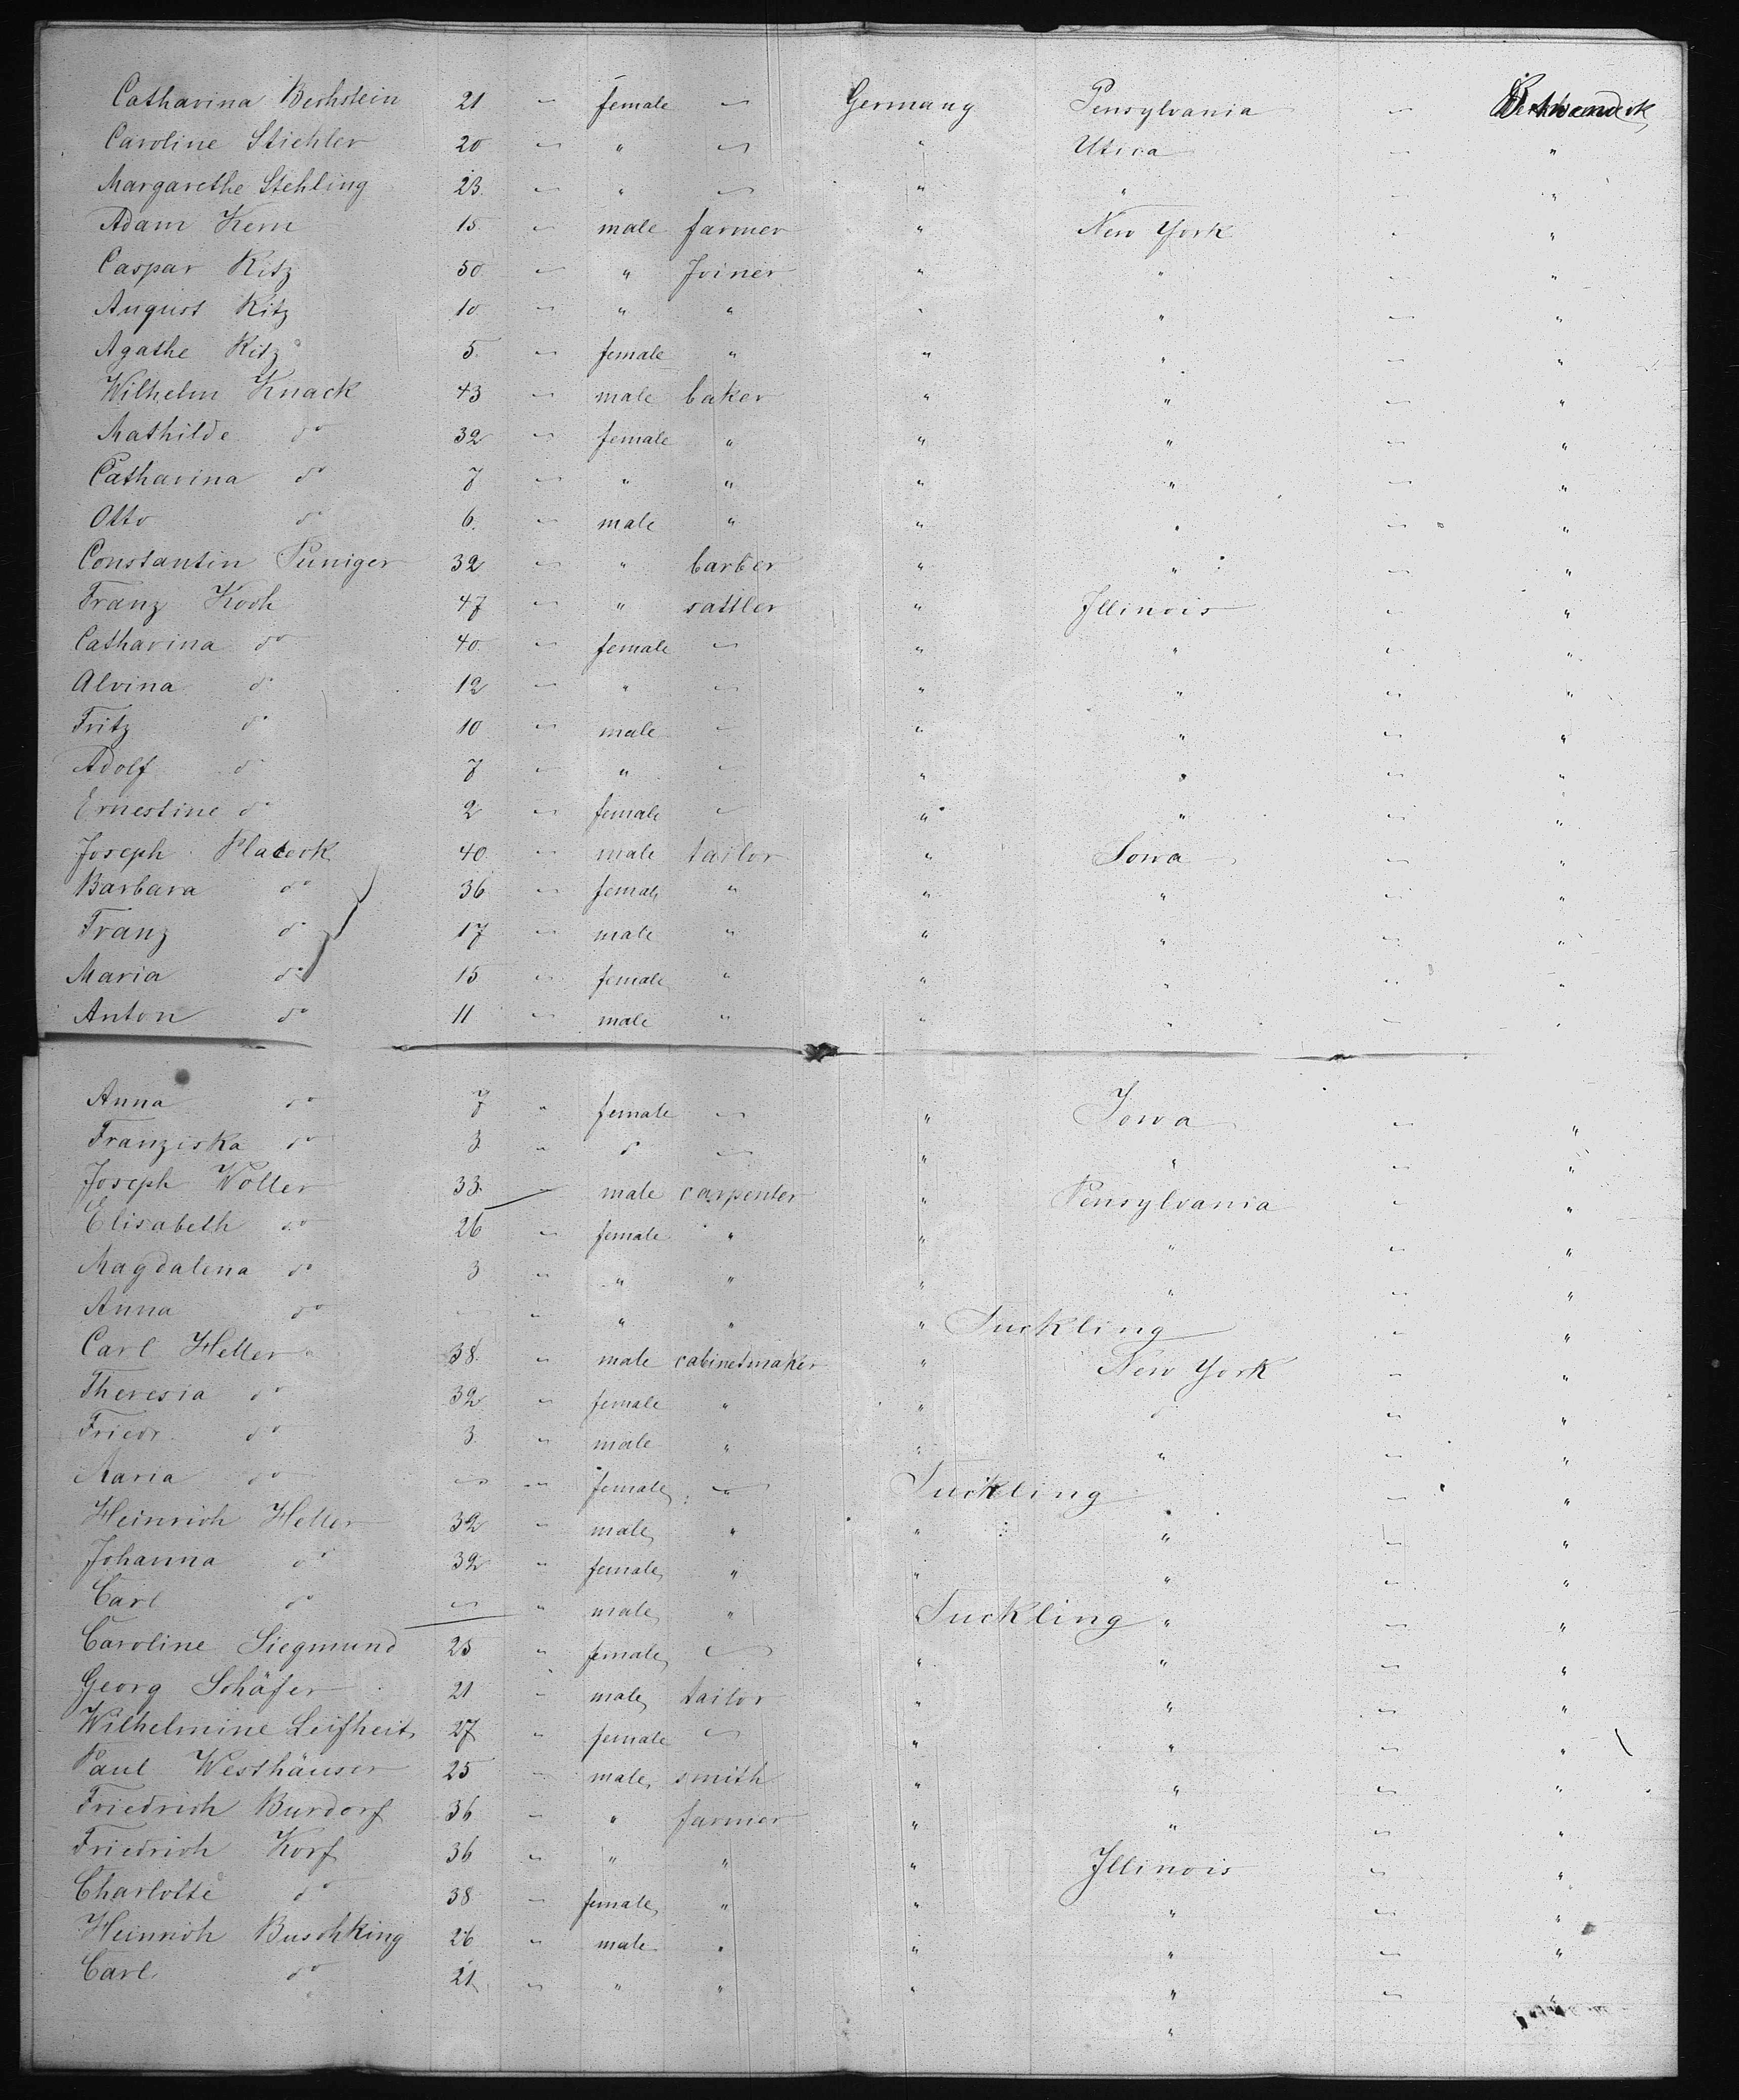 Catharina Bechstein 21 〃 female 〃 Germany Pensylvania 〃
Caroline Stichler 20 〃 〃 〃 〃 Utica 〃 〃
Margarethe Stehling 23. 〃 〃 〃 〃 〃 〃 〃
Adam Kern 15 〃 male farmer 〃 New York 〃 〃
Caspar Ritz 50 〃 〃 Joiner 〃 〃 〃 〃
August Ritz 10 〃 〃 〃 〃 〃 〃 〃
Agathe Ritz 5. 〃 female 〃 〃 〃 〃 〃
Wilhelm Knack 43 〃 male baker 〃 〃 〃 〃
Mathilde do 32 〃 female 〃 〃 〃 〃 〃
Catharina do 7 〃 〃 〃 〃 〃 〃 〃
Otto do 6. 〃 male 〃 〃 〃 〃 〃
Constantin Puniger 32 〃 〃 barber 〃 〃 〃 〃
Franz Koch 47 〃 〃 sattler 〃 Illinois 〃 〃
Catharina do 40. 〃 female 〃 〃 〃 〃 〃
Alvina do 12 〃 〃 〃 〃 〃 〃 〃
Fritz do 10 〃 male 〃 〃 〃 〃 〃
Adolf do 7 〃 〃 〃 〃 〃 〃 〃
Ernestine do 2 〃 female 〃 〃 〃 〃 〃
Joseph 40 〃 male tailor 〃 Iowa 〃 〃
Barbara do 36 〃 female 〃 〃 〃 〃 〃
Franz do 17 〃 male 〃 〃 〃 〃 〃
Maria do 15 〃 female 〃 〃 〃 〃 〃
Anton do 11 〃 male 〃 〃 〃 〃 〃
Anna do 7 〃 female 〃 〃 Iowa 〃 〃
Franziska do 3 〃 do 〃 〃 〃 〃 〃
Joseph Wolter 33. 〃 male carpenter 〃 Pensylvania 〃 〃
Elisabeth do 26 〃 female 〃 〃 〃 〃 〃
Magdalena do 3 〃 〃 〃 〃 〃 〃 〃
Anna do 〃 〃 〃 〃 〃 Suckling 〃 〃
Carl Heller 38. 〃 male cabinetmaker 〃 New York 〃 〃
Theresia do 32 〃 female 〃 〃 do 〃 〃
Friedr. do 3. 〃 male 〃 〃 〃 〃 〃
Maria do 〃 〃 female 〃 Suckling 〃 〃
Heinrich Heller 32 〃 male 〃 〃 〃 〃 〃
Johanna do 32 〃 female 〃 〃 〃 〃 〃
Carl do 〃 〃 male 〃 Suckling 〃 〃 〃
Caroline Siegmund 25 〃 female 〃 〃 〃 〃 〃
Georg Schäfer 21 〃 male tailor 〃 〃 〃 〃
Wilhelmine Leifheit 27 〃 female 〃 〃 〃 〃 〃
Paul Westhäuser 25 〃 male smith 〃 〃 〃 〃
Friedrich Burdorf 36 〃 〃 farmer 〃 〃 〃 〃
Friedrich Korf 36 〃 〃 〃 〃 Illinois 〃 〃
Charlotte do 38 〃 female 〃 〃 〃 〃 〃
Heinrich Buschking 26 〃 male 〃 〃 〃 〃 〃
Carl do 21 〃 〃 〃 〃 〃 〃
〃